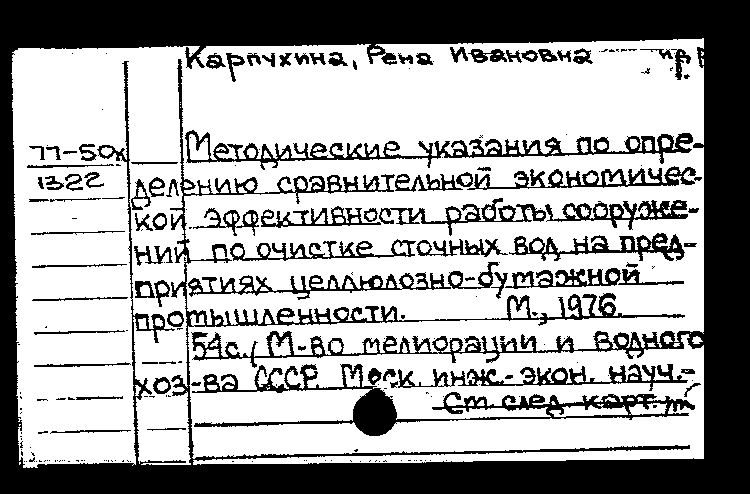 Карпухина, Рена Ивановна
77-50к
1322
Методические указания по опре-
делению сравнительной экономичес-
кой эффективности работы сооруже-
ний по очистке сточных вод на пред-
приятиях целлюлозно-бумажной
промышленности. М., 1976.
54с. (М-во мелиорации и водного
хоз-ва СССР. Моск. инж.-экон. науч.-
См след карт.